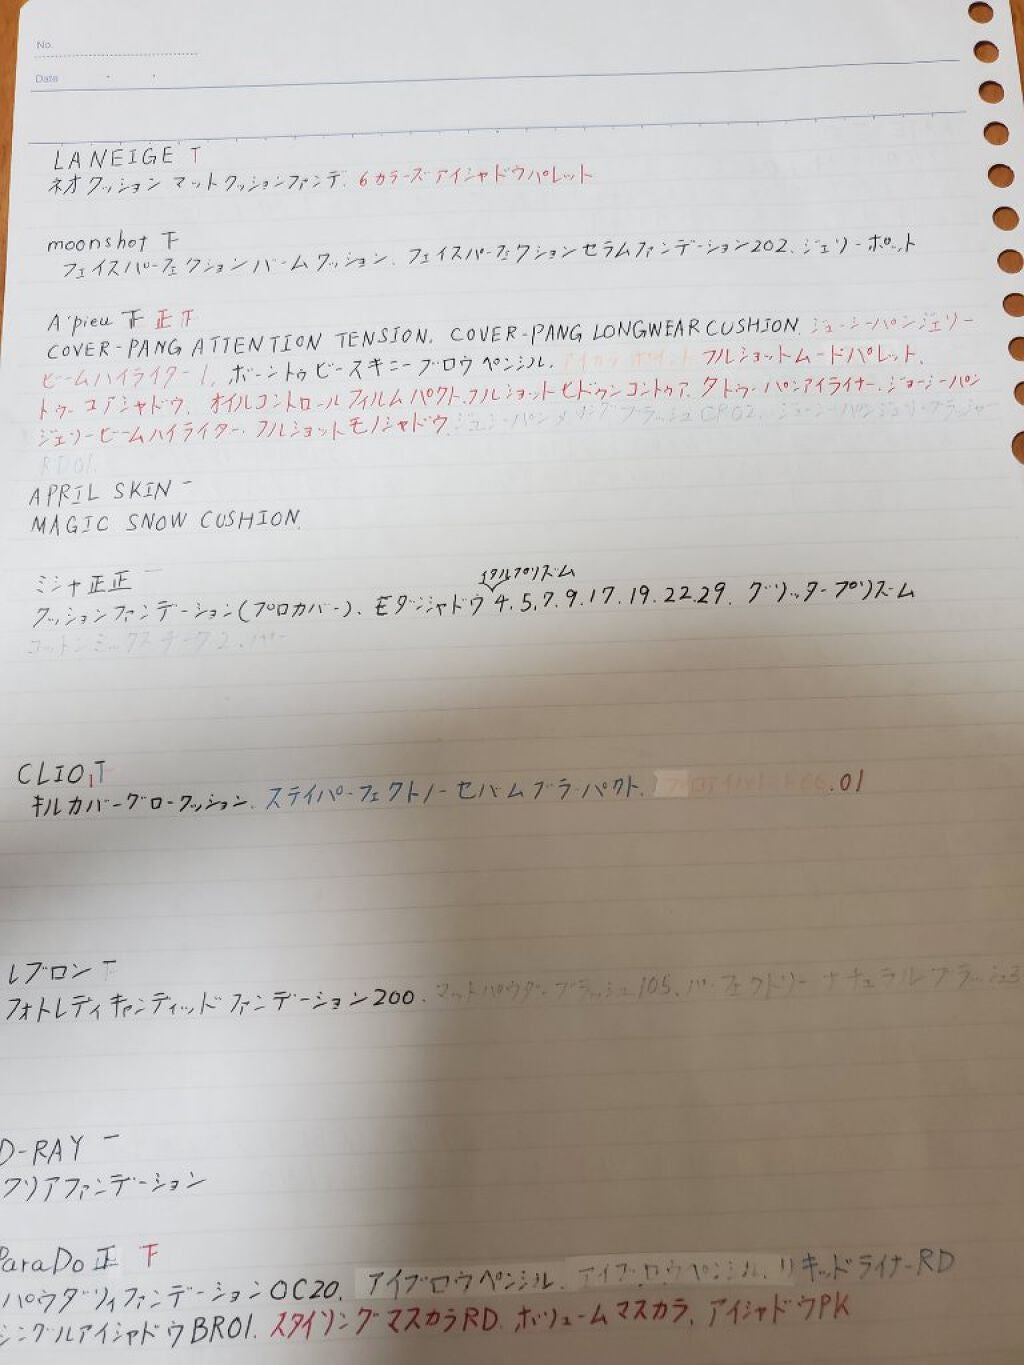 No.
Date
LANEIGE T
ネオクッション マットクッションファンデ. 6カラーズアイシャドウパレット
moonshot 下
フェイスパーフェクションバームクッション、フェイスパーフェクションセラムファンデーション202、ジェリーポット
A'pieu 下 正 下
COVER-PANG ATTENTION TENSION. COVER-PANG LONGWEAR CUSHION. ジューシーパンジェリー
ビームハイライター1. ボーントゥビースキニーブロウペンシル. フルショットムードパレット.
トゥーコアシャドウ、オイルコントロールフィルムパクト.フルショットヒドゥンコントゥア. タトゥーパンアイライナー.ジューシーパン
ジェリービームハイライター. フルショットモノシャドウ. CP02.
RD01.
APRIL SKIN 一
MAGIC SNOW CUSHION.
ミシャ 正正 一
イタルプリズム
クッションファンデーション(プロカバー)、モダンシャドウ 4.5.7.9.17.19.22.29. グリッタープリズム
コットンミックスチーク2.
CLIO T
キルカバーグロークッション. ステイパーフェクトノーセバムブラーパクト. .01
レブロン 下
フォトレディキャンディッドファンデーション200. マットパウダーブラッシュ105. パーフェクトリーナチュラルブラッシュ3
D-RAY 一
クリアファンデーション
ParaDo 正 下
パウダリィファンデーションOC20. アイブロウペンシル. アイブロウペンシル. リキッドライナーRD
シングルアイシャドウBR01. スタイリングマスカラRD. ボリュームマスカラ. アイシャドウPK